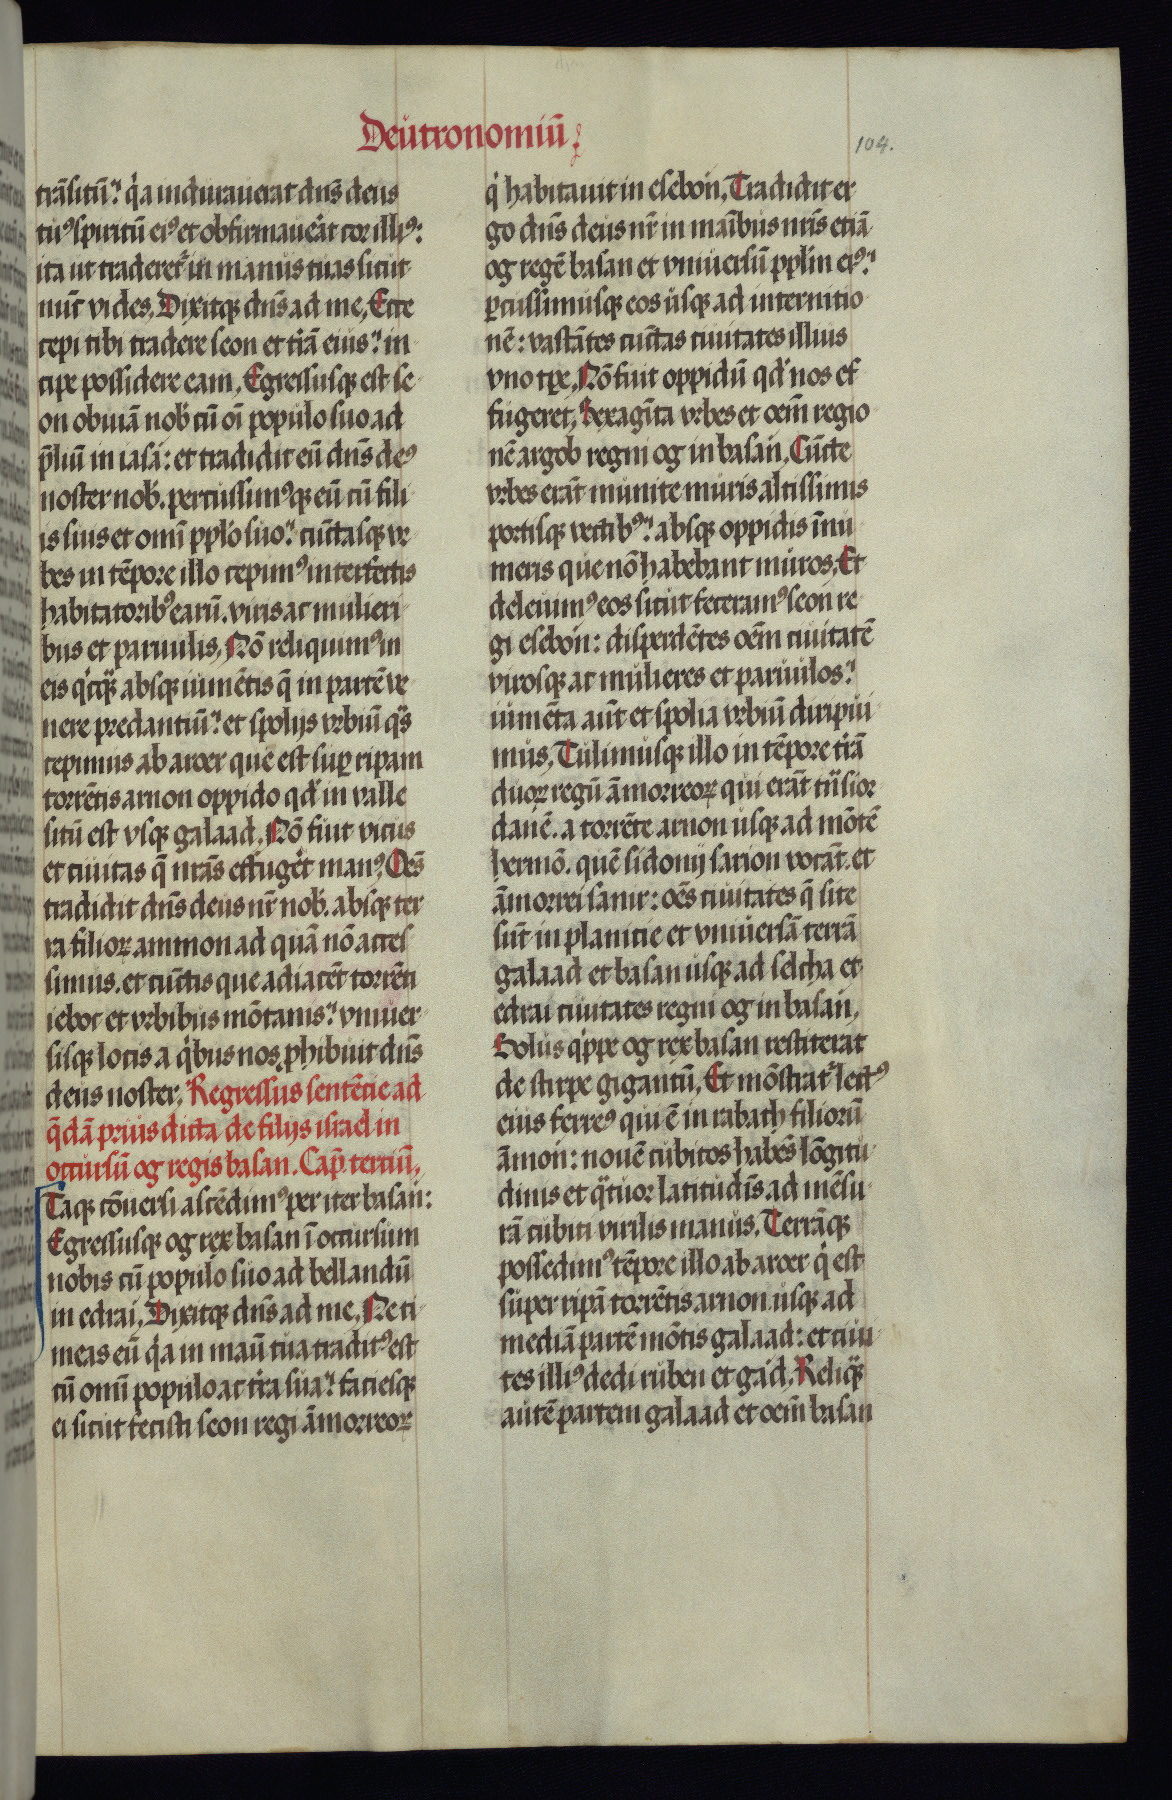 Deutronomiū
104.
trāsitū? q̇a indurauerat dn̄s deus
tuꝰ spiritū eiꝰ et obfirmauèat cor illiꝰ:
ita ut traderetr̉ in manus tuas sicut
nūc vides, Dixitqꝫ dn̄s ad me, Ecce
cepi tibi tradere seon et tr̄ā eius? in
cipe possidere eam, Egressusqꝫ est se
on obuiā nob̉ cū oī populo suo ad
p̄liū in iasa: et tradidit eū dn̄s deꝰ
noster nob̉. percussimꝰqꝫ eū cū fili
is suis et omī pplo̓ suo? cūctasqꝫ vr
bes in tēpore illo cepimꝰ interfectis
habitatoribꝰ earū. viris ac mulieri
bus et paruulis, Nō reliquimꝰ in
eis q̇cqͣꝫ absqꝫ iumētis q̄ in partē ve
nere predantiū? et spolijs vrbiū qͣs
cepimus ab aroer que est suꝑ ripam
torrētis arnon oppido qd̓ in valle
sitū est vsqꝫ galaad, Nō fuit vicus
et ciuitas q̄ nr̄as effugèt manꝰ, Oēs
tradidit dn̄s deus nr̄ nob̉. absqꝫ ter
ra filioꝝ ammon ad quā nō acces
simus. et cūctis que adiacēt torrēti
ieboc et vrbibus mōtanis? vniuer
sisqꝫ locis a q̇bus nos ꝓhibuit dn̄s
deus noster, Regressus sentētie ad
q̄dā prius dicta de filijs israel in
occursū og regis basan. Cap̄ terciū,
Taqꝫ cōuersi ascēdimꝰ per iter basan:
Egressusqꝫ og rex basan ī occursum
nobis cū populo suo ad bellandū
in edrai, Dixitqꝫ dn̄s ad me, Ne ti
meas eū q̇a in manū tua traditꝰ est
cū omī populo ac tr̄a sua? faciesqꝫ
ei sicut fecisti seon regi āmorreoꝝ
q̇ habitauit in esebon, Tradidit er
go dn̄s deus nr̄ in manībus nr̄is etiā
og regē basan et vniuersū pplm̄ eiꝰ?
ꝑcussimusqꝫ eos usqꝫ ad internitio
nē: vastātes cūctas ciuitates illius
vno tꝑe, Nō fuit oppidū qd̓ nos ef
fugeret, Sexagīta vrbes et oēm regio
nē argob regni og in basan, Cūcte
vrbes erāt munite muris altissimis
portisqꝫ vectibꝰ? absqꝫ oppidis īnu
meris que nō habebant muros, Et
deleuimꝰ eos sicut feceramꝰ seon re
gi esebon: disperdētes oēm ciuitatē
virosqꝫ ac mulieres et paruulos?
iumēta aūt et spolia vrbiū diripui
mus, Tulimusqꝫ illo in tēpore tr̄ā
duoꝝ regū āmorreoꝝ qui erāt trͣsior
danē. a torrēte arnon usqꝫ ad mōtē
hermō. quē sidonij sarion vocāt. et
āmorrei sanir: oēs ciuitates q̄ site
sūt in planicie et vniuersā terrā
galaad et basan usqꝫ ad selcha et
edrai ciuitates regni og in basan,
Solus q̇ppe og rex basan restiterat
de stirpe gigantū, Et mōstratr̉ lectꝰ
eius ferreꝰ qui ē in rabath filiorū
āmon: nouē cubitos habēs lōgitu
dinis et qͣtuor latitudīs ad mēsu
rā cubiti virilis manus, Terrāqꝫ
possedimꝰ tēpore illo ab aroer q̇ est
super ripā torrētis arnon usqꝫ ad
mediā partē mōtis galaad: et ciui
tes illiꝰ dedi ruben et gad, Reliqͣꝫ
autē partem galaad et oēm basan